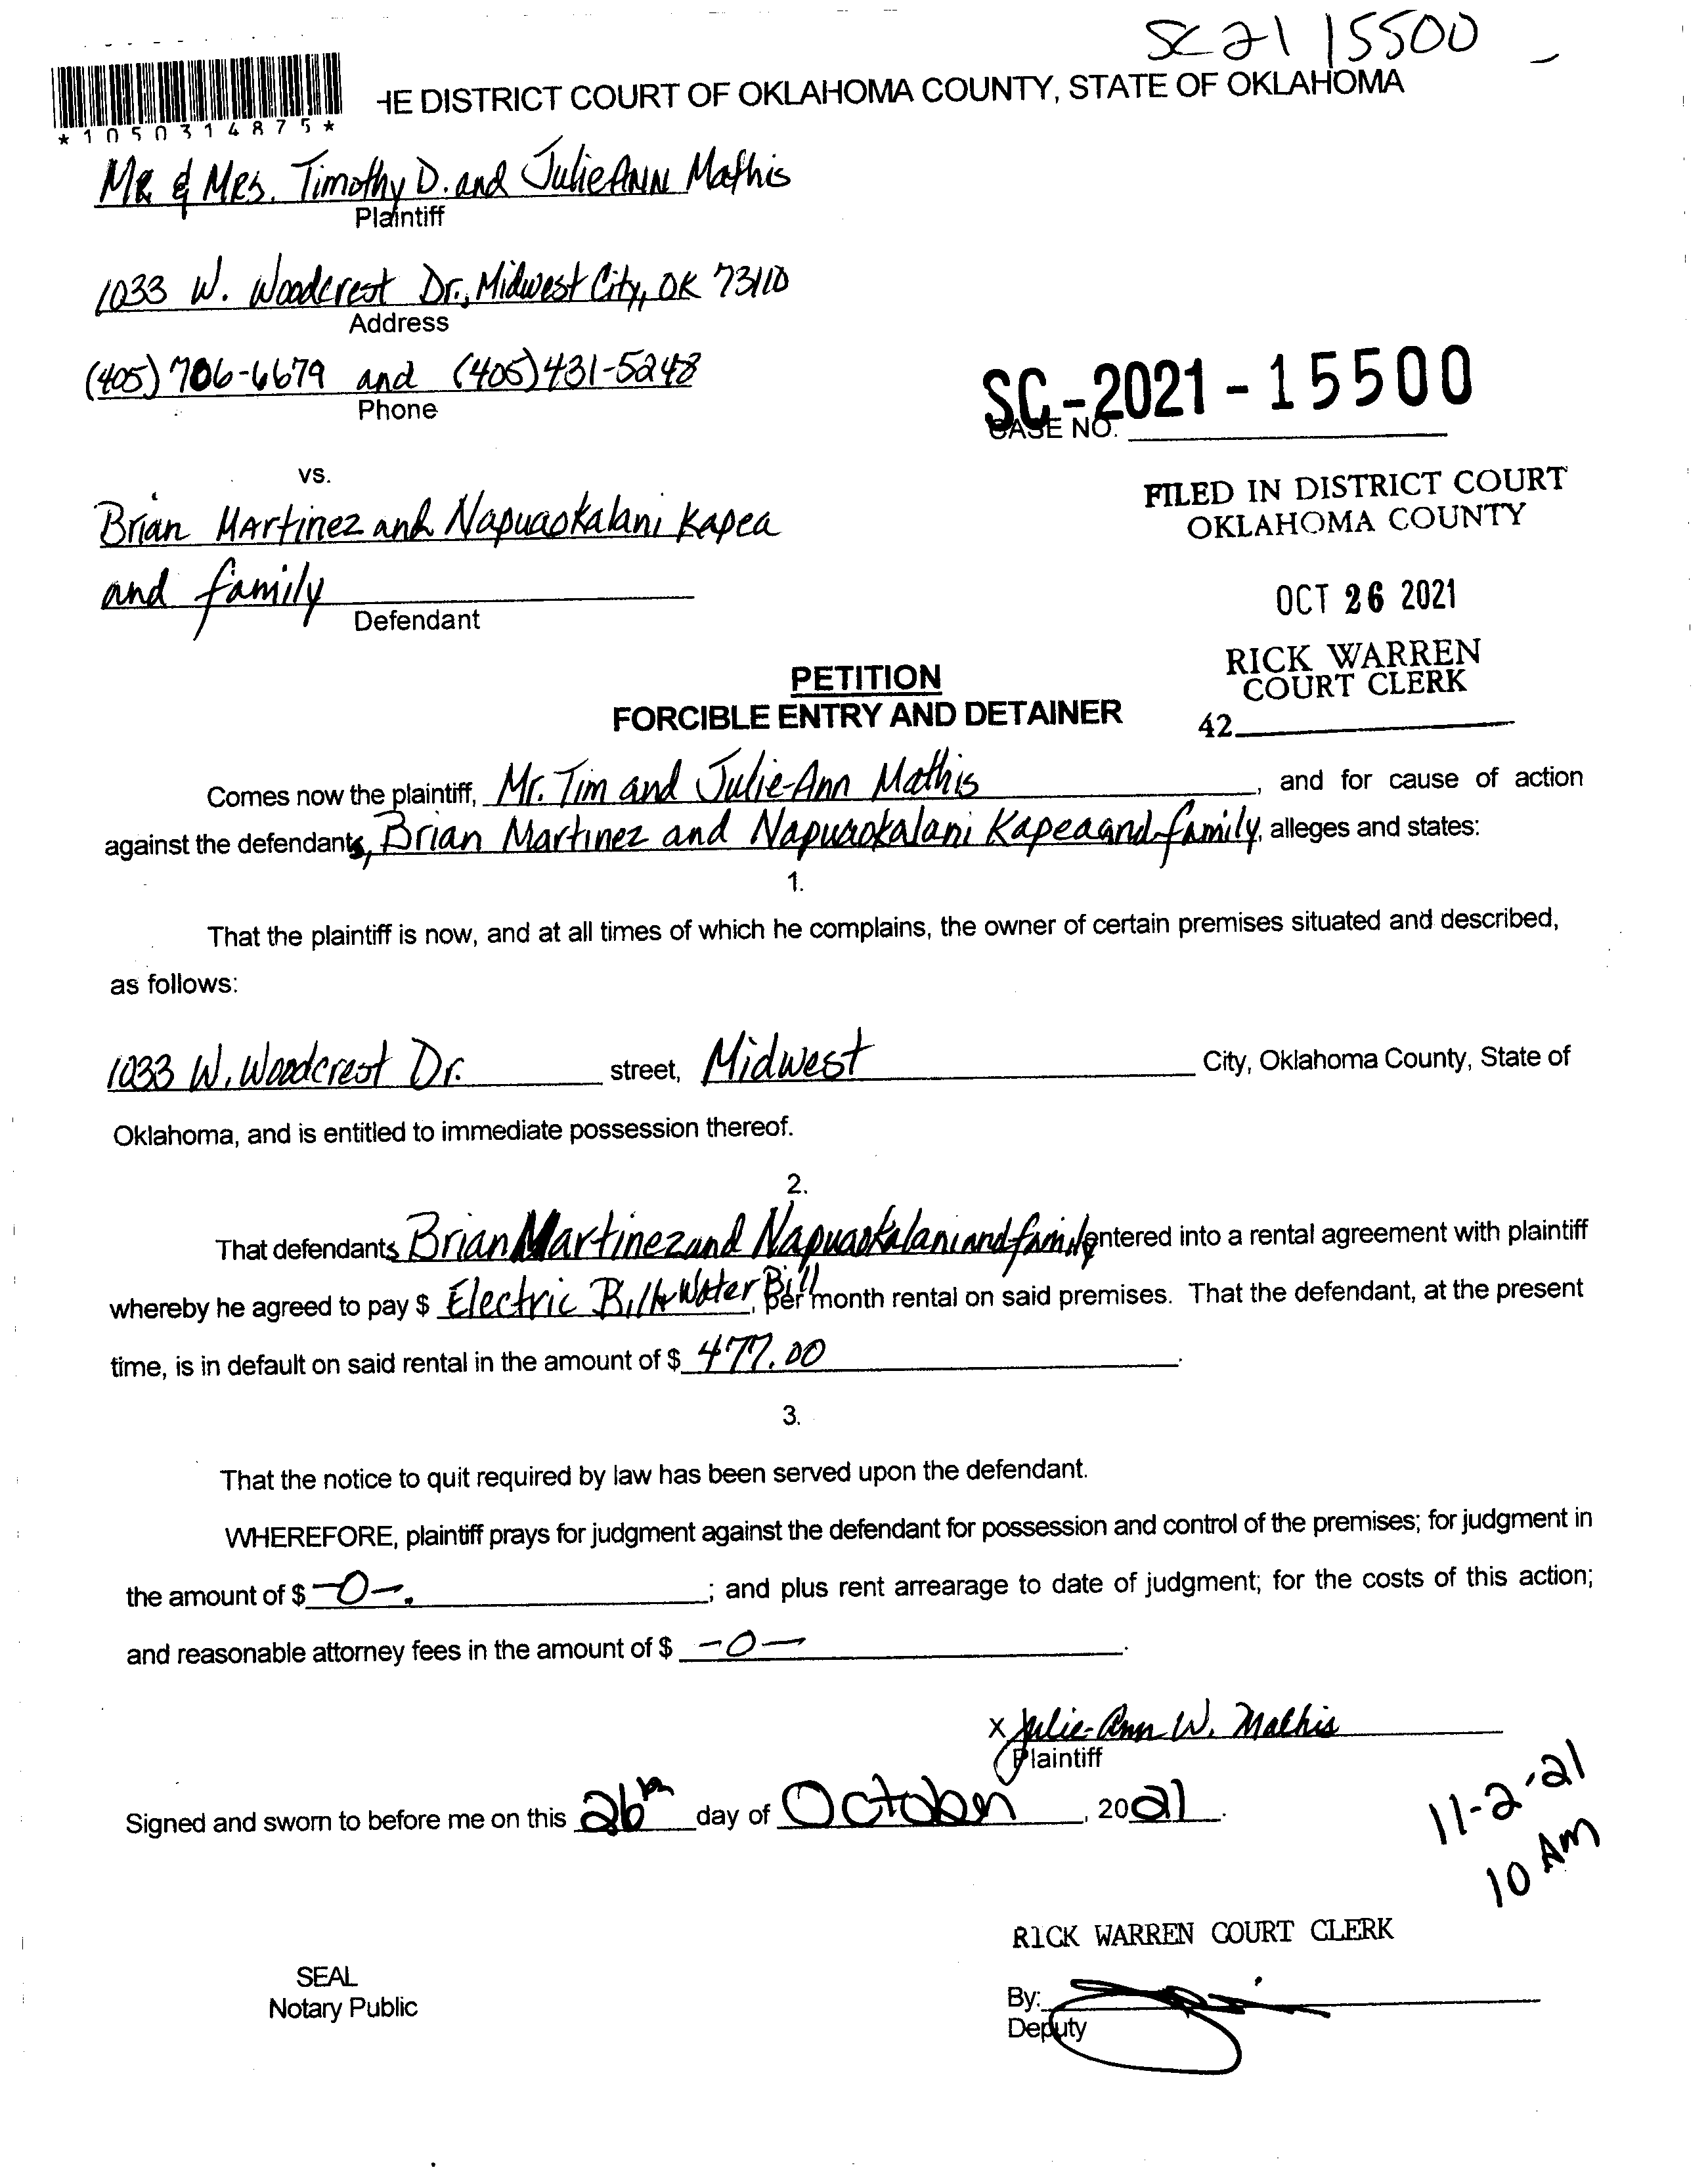 SC 21 15500
*1050314875*
HE DISTRICT COURT OF OKLAHOMA COUNTY, STATE OF OKLAHOMA
MR & MRS. Timothy D. and JulieANN Mathis
Plaintiff
1033 W. Woodcrest Dr., Midwest City, OK 73110
Address
(405) 706-6679 and (405) 431-5248
Phone
SC-2021-15500
CASE NO.
vs.
FILED IN DISTRICT COURT
OKLAHOMA COUNTY
Brian Martinez and Napuaokalani Kapea
and family
Defendant
OCT 26 2021
RICK WARREN
COURT CLERK
42
PETITION
FORCIBLE ENTRY AND DETAINER
Comes now the plaintiff, Mr. Tim and Julie-Ann Mathis, and for cause of action
against the defendants, Brian Martinez and Napuaokalani Kapea and family, alleges and states:
1.
That the plaintiff is now, and at all times of which he complains, the owner of certain premises situated and described,
as follows:
1033 W. Woodcrest Dr. street, Midwest City, Oklahoma County, State of
Oklahoma, and is entitled to immediate possession thereof.
2.
That defendants Brian Martinez and Napuaokalani and family entered into a rental agreement with plaintiff
whereby he agreed to pay $ Electric Bill & Water Bill, per month rental on said premises. That the defendant, at the present
time, is in default on said rental in the amount of $ 477.00.
3.
That the notice to quit required by law has been served upon the defendant.
WHEREFORE, plaintiff prays for judgment against the defendant for possession and control of the premises; for judgment in
the amount of $ -0-.; and plus rent arrearage to date of judgment; for the costs of this action;
and reasonable attorney fees in the amount of $ -0-.
X Julie-Ann W. Mathis
Plaintiff
Signed and sworn to before me on this 26th day of October, 2021.
11-2-21
10 AM
RICK WARREN COURT CLERK
SEAL
Notary Public
By:
Deputy